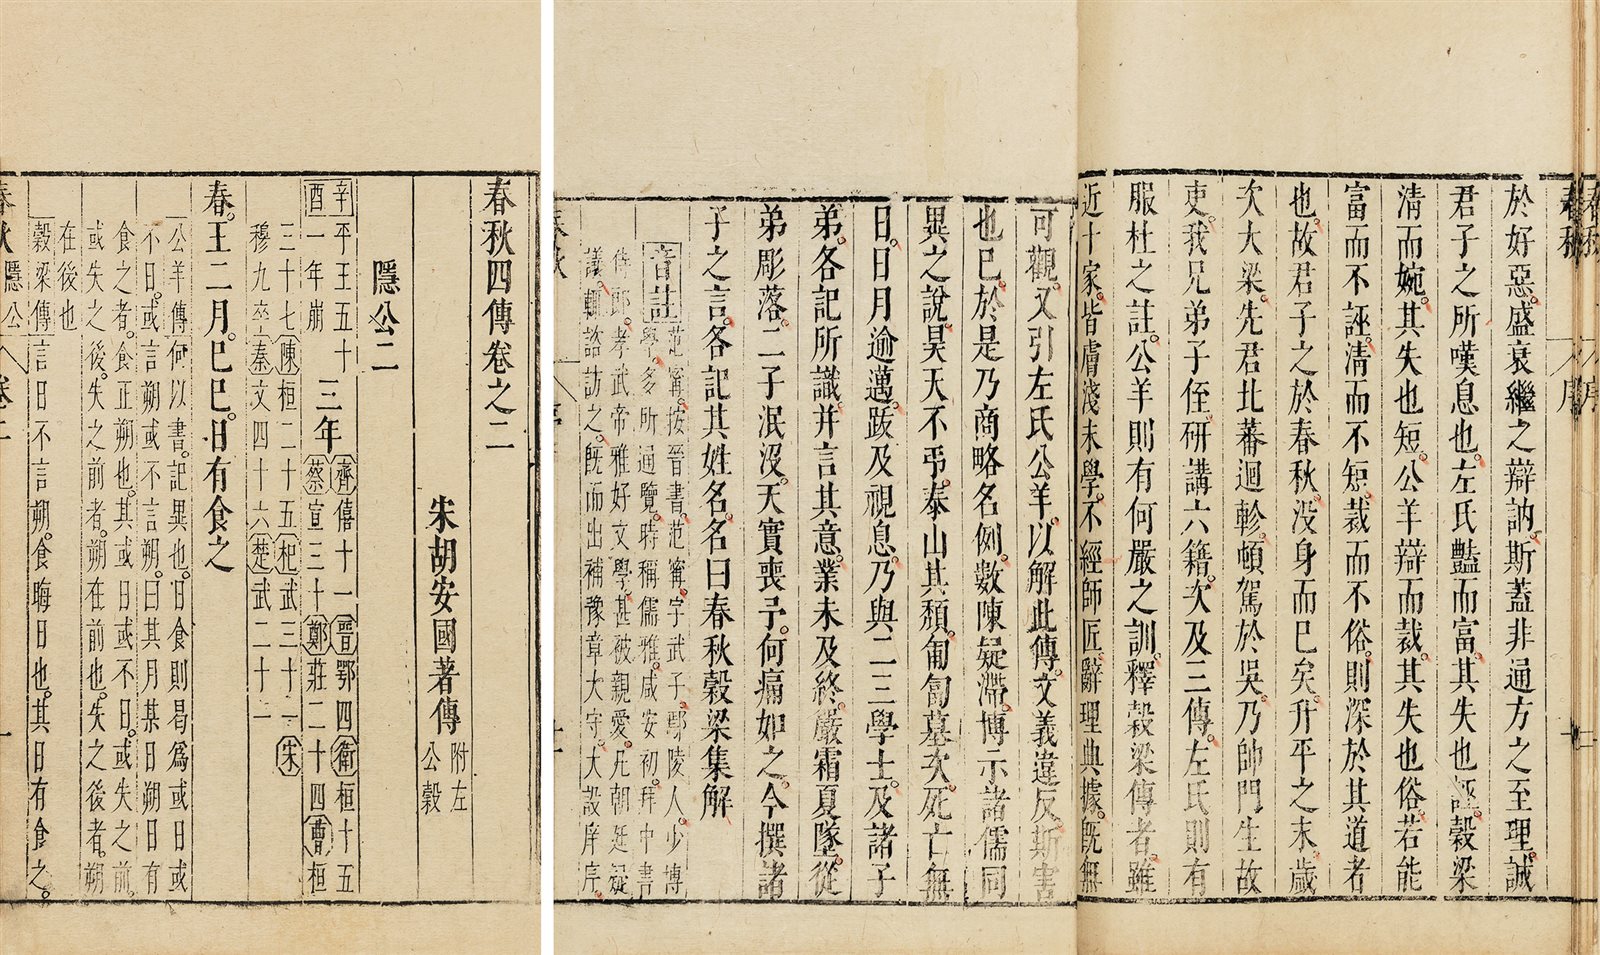 春秋 序
於好惡。盛衰繼之辯訥。斯蓋非通方之至理。誠
君子之所嘆息也。左氏豔而富。其失也誣。穀梁
清而婉。其失也短。公羊辯而裁。其失也俗。若能
富而不誣。清而不短。裁而不俗。則深於其道者
也。故君子之於春秋。沒身而已矣。升平之末。歲
次大梁。先君北蕃迴軫。頓駕於吳。乃帥門生故
吏。我兄弟子侄。研講六籍。次及三傳。左氏則有
服杜之註。公羊則有何嚴之訓。釋穀梁傳者。雖
近十家。皆膚淺末學。不經師匠。辭理典據。既無
可觀。又引左氏公羊。以解此傳。文義違反。斯害
也已。於是乃商略名例。敷陳疑滯。博示諸儒同
異之說。昊天不弔。泰山其頹。匍匐墓次。死亡無
日。日月逾邁。跂及視息。乃與二三學士。及諸子
弟。各記所識。并言其意。業未及終。嚴霜夏墜。從
弟彫落。二子泯沒。天實喪予。何痛如之。今撰諸
子之言。各記其姓名。名曰春秋穀梁集解
音註 范甯。按晉書。范甯。字武子。鄢陵人。少博
學。多所通覽。時稱儒雅。咸安初。拜中書
侍郎。孝武帝雅好文學。甚被親愛。凡朝廷疑
議。輒諮訪之。既而出補豫章大守。大設庠序。
春秋四傳卷之二
朱胡安國著傳 附左
公穀
隱公二
辛酉 平王五十
一年崩
三年
齊僖十一 晉鄂四 衛桓十五
蔡宣三十 鄭莊二十四 曹桓
三十七 陳桓二十五 杞武三十一 宋
穆九卒 秦文四十六 楚武二十一
春。王二月。己巳。日有食之
公羊傳 何以書。記異也。日食則曷為或日或
不日。或言朔或不言朔。曰其月某日朔日有
食之者。食正朔也。其或日或不日。或失之前。
或失之後。失之前者。朔在前也。失之後者。朔
在後也
穀梁傳 言日不言朔。食晦日也。其日有食之。
春秋 隱公 卷二 一